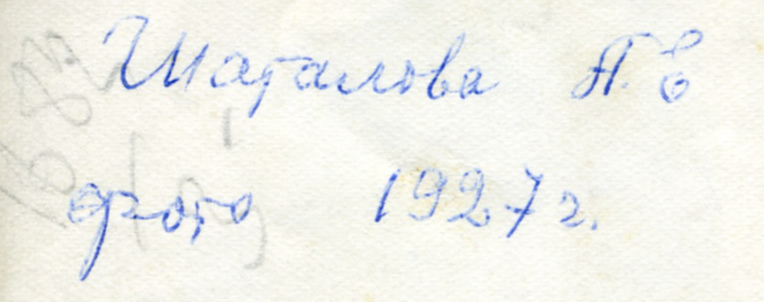 Шаталова А. Е
фото 1927 г.